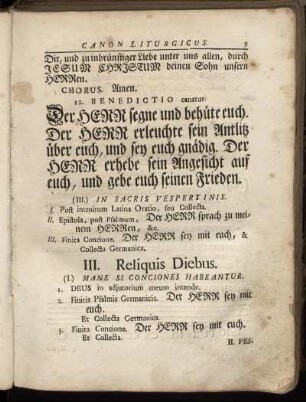 CANON LITURGICUS. 9
Dir, und zu inbrünstiger Liebe unter uns allen, durch
JESUM CHRISTUM deinen Sohn unsern
HERRen.
CHORUS. Amen.
12. BENEDICTIO cantatur.
Der HERR segne und behüte euch.
Der HERR erleuchte sein Antlitz
über euch, und sey euch gnädig. Der
HERR erhebe sein Angesicht auf
euch, und gebe euch seinen Frieden.
(III.) IN SACRIS VESPERTINIS.
I. Post introitum Latina Oratio, seu Collecta.
II. Epistola, post Psalmum, Der HERR sprach zu mei-
nem HERRen, &c.
III. Finita Concione. Der HERR sey mit euch, &
Collecta Germanica.
III. Reliquis Diebus.
(I.) MANE SI CONCIONES HABEANTUR.
1. DEUS in adjutorium meum intende.
2. Finitis Psalmis Germanicis. Der HERR sey mit
euch.
Et Collecta Germanica.
3. Finita Concione. Der HERR sey mit euch.
Et Collecta.
II. VES-